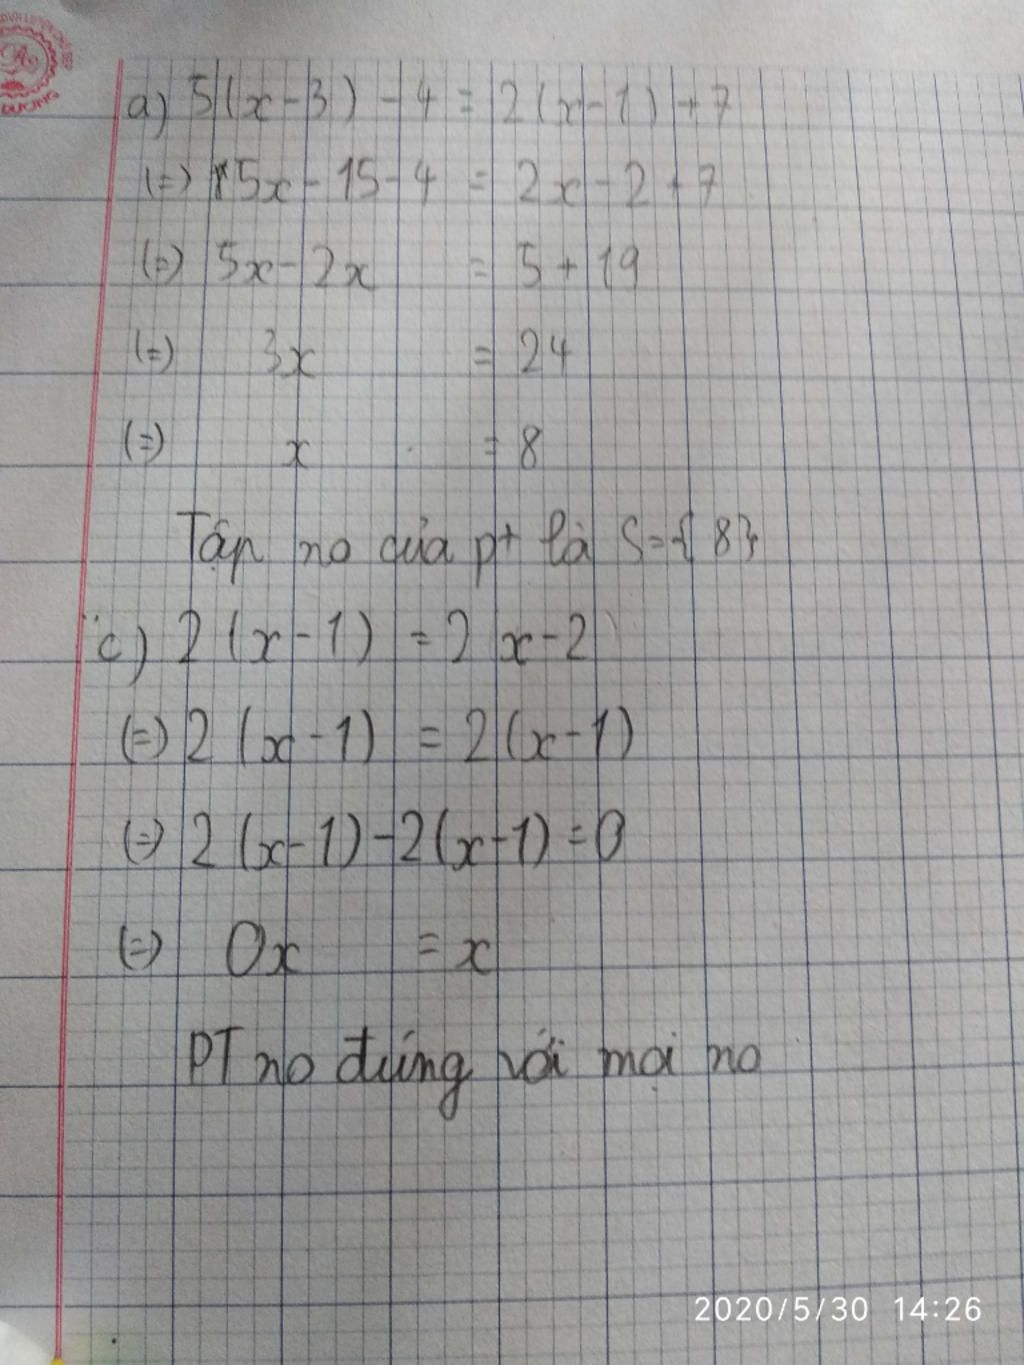 a) 5(x-3) - 4 = 2(x-1) + 7
(=) 5x - 15 - 4 = 2x - 2 + 7
(=) 5x - 2x = 5 + 19
(=) 3x = 24
(=) x = 8
Tập no của pt là S = {8}
c) 2(x-1) = 2x-2
(=) 2(x-1) = 2(x-1)
(=) 2(x-1)-2(x-1) = 0
(=) 0x = x
PT no đúng với mọi no
2020/5/30 14:26